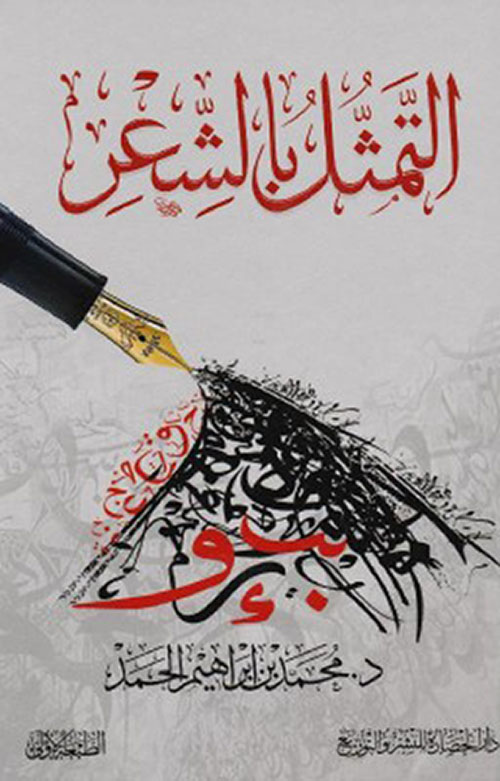 التَّمَثُّلُ بِالشِّعْرِ
د. محمد بن إبراهيم الحمد
دار الحضارة للنشر والتوزيع
الطبعة الأولى